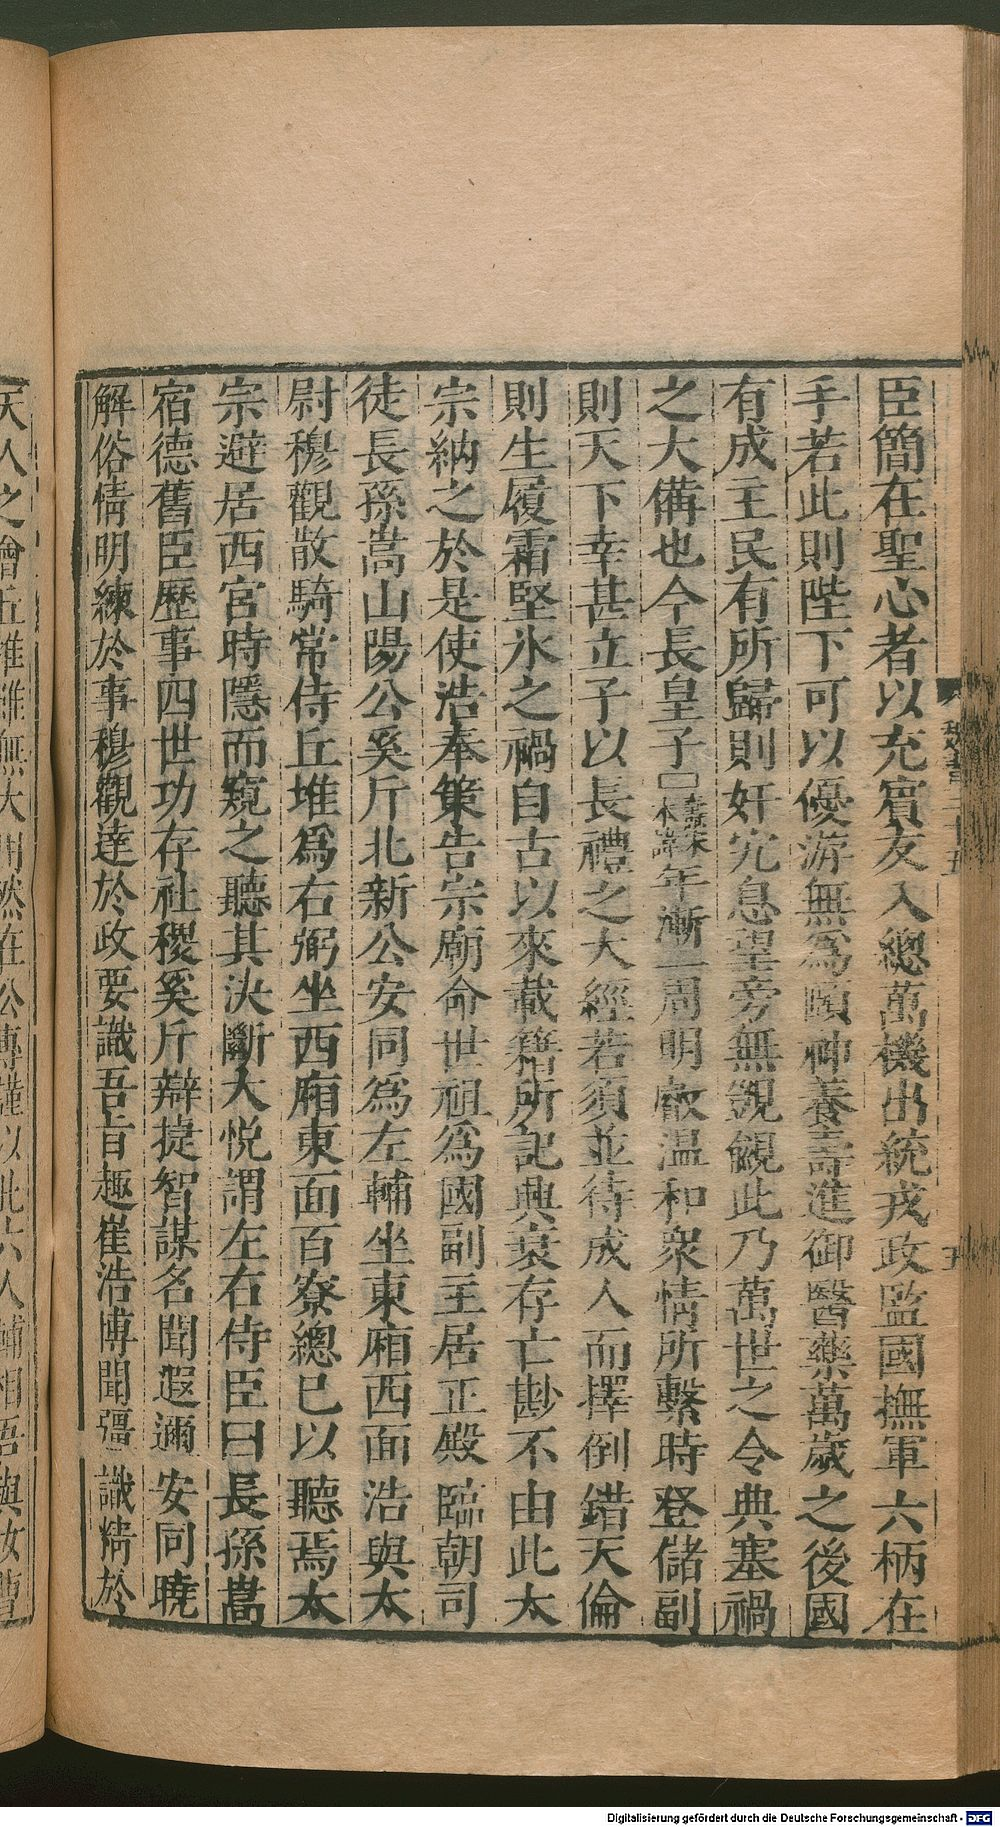 臣簡在聖心者以充賓友入總萬機出統戎政監國撫軍六柄在
手若此則陛下可以優游無爲頤神養壽進御醫藥萬歲之後國
有成主民有所歸則奸宄息望旁無覬覦此乃萬世之令典塞禍
之大備也今長皇子□燾宋本諱年漸一周明叡温和衆情所繫時登儲副
則天下幸甚立子以長禮之大經若須並待成人而擇倒錯天倫
則生履霜堅氷之禍自古以來載籍所記興衰存亡尠不由此太
宗納之於是使浩奉策告宗廟命世祖爲國副主居正殿臨朝司
徒長孫嵩山陽公奚斤北新公安同爲左輔坐東廂西面浩與太
尉穆觀散騎常侍丘堆爲右弼坐西廂東面百寮總已以聽焉太
宗避居西宮時隱而窺之聽其決斷大悅謂左右侍臣曰長孫嵩
宿德舊臣歷事四世功存社稷奚斤辯捷智謀名聞遐邇安同曉
解俗情明練於事穆觀達於政要識吾旨趣崔浩博聞彊識精於
天人之會丘堆雖無大用然在公專謹以此六人輔相吾與汝曹
Digitalisierung gefördert durch die Deutsche Forschungsgemeinschaft - DFG